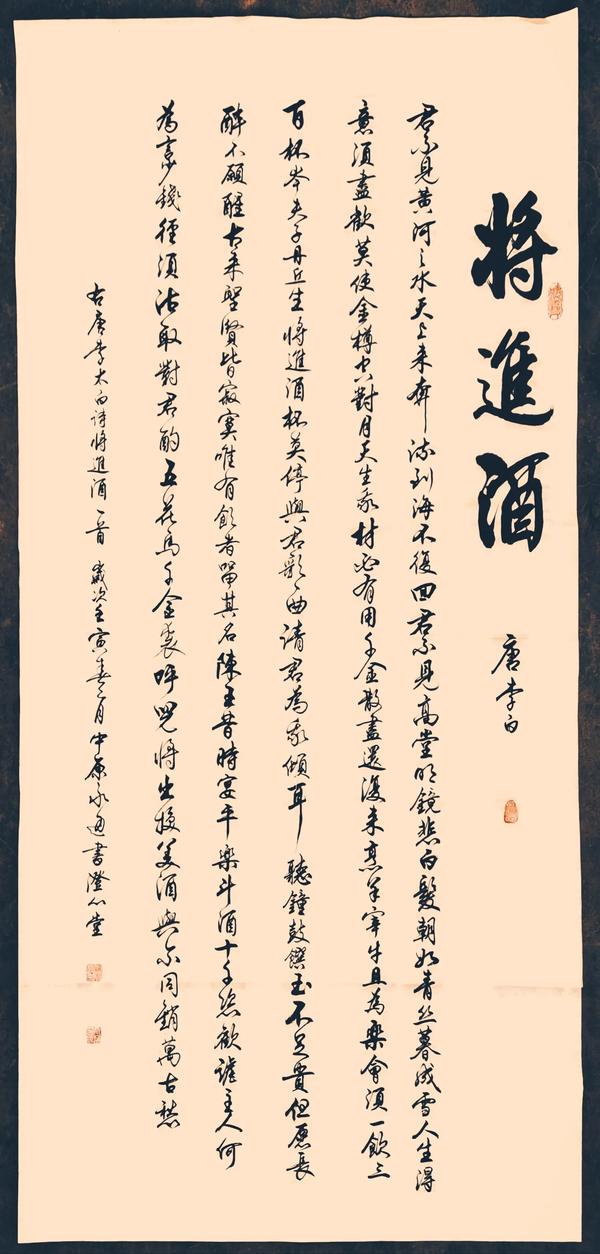 將進酒
唐李白
君不見黃河之水天上來奔流到海不復回君不見高堂明鏡悲白髮朝如青絲暮成雪人生得
意須盡歡莫使金樽空對月天生我材必有用千金散盡還復來烹羊宰牛且為樂會須一飲三
百杯岑夫子丹丘生將進酒杯莫停與君歌一曲請君為我傾耳聽鐘鼓饌玉不足貴但愿長
醉不願醒古來聖賢皆寂寞唯有飲者留其名陳王昔時宴平樂斗酒十千恣歡謔主人何
為言少錢徑須沽取對君酌五花馬千金裘呼兒將出換美酒與爾同銷萬古愁
右唐李太白詩將進酒一首 歲次壬寅春之月中原永通書澄心堂